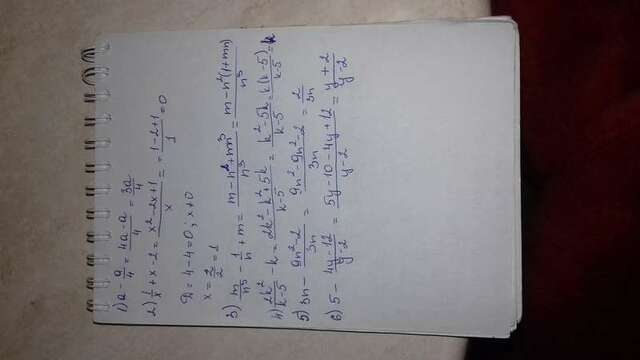 1) a - a/4 = 4a-a/4 = 3a/4
2) 1/x + x - 2 = x²-2x+1/x = -1-2+1/1 = 0
D = 4-4=0; x≠0
x = 2/2 = 1
3) m/n³ - 1/n + m = m-n²+mn³/n³ = m-n²(1+mn)/n³
4) 2k²/k-5 - k = 2k²-k²+5k/k-5 = k²-5k/k-5 = k(k-5)/k-5 = k
5) 3n - 9n²-2/3n = 9n²-9n²-2/3n = 2/3n
6) 5 - 4y-12/y-2 = 5y-10-4y+12/y-2 = y+2/y-2